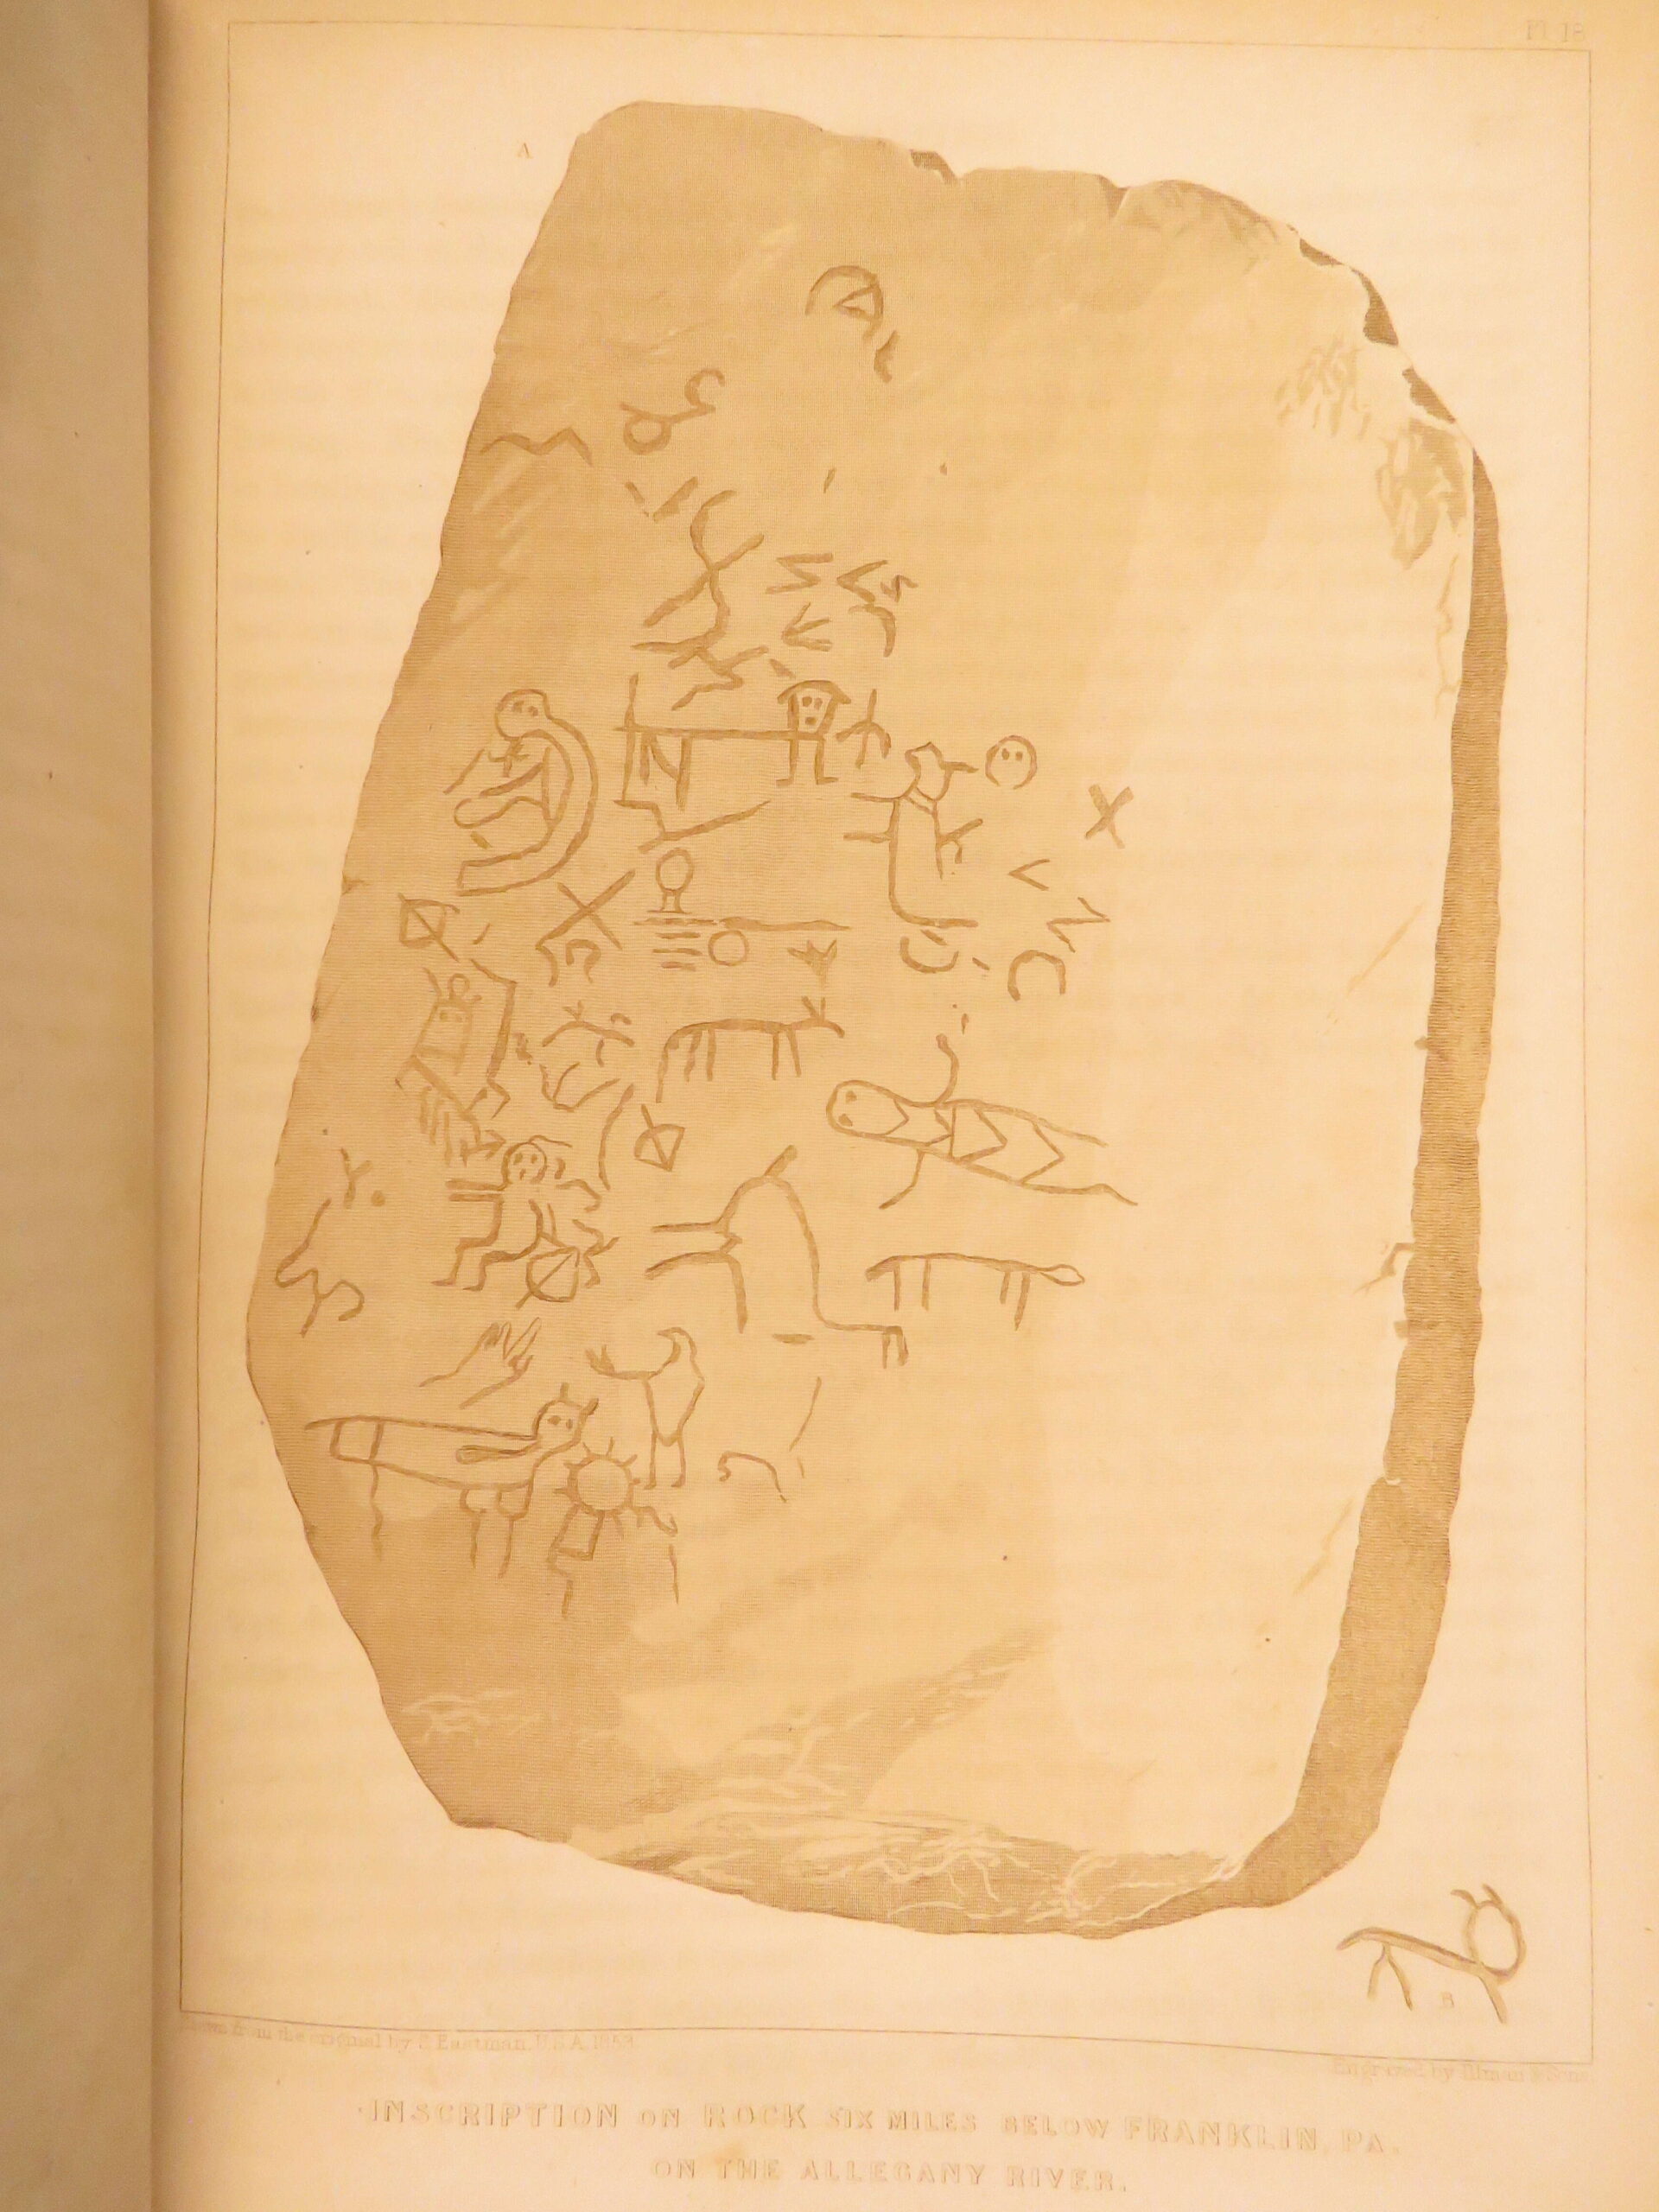 Pl. 18
A
B
Drawn from the original by S. Eastman, U.S.A. 1853
Engraved by Illman & Sons
INSCRIPTION ON ROCK SIX MILES BELOW FRANKLIN, PA.
ON THE ALLEGANY RIVER.